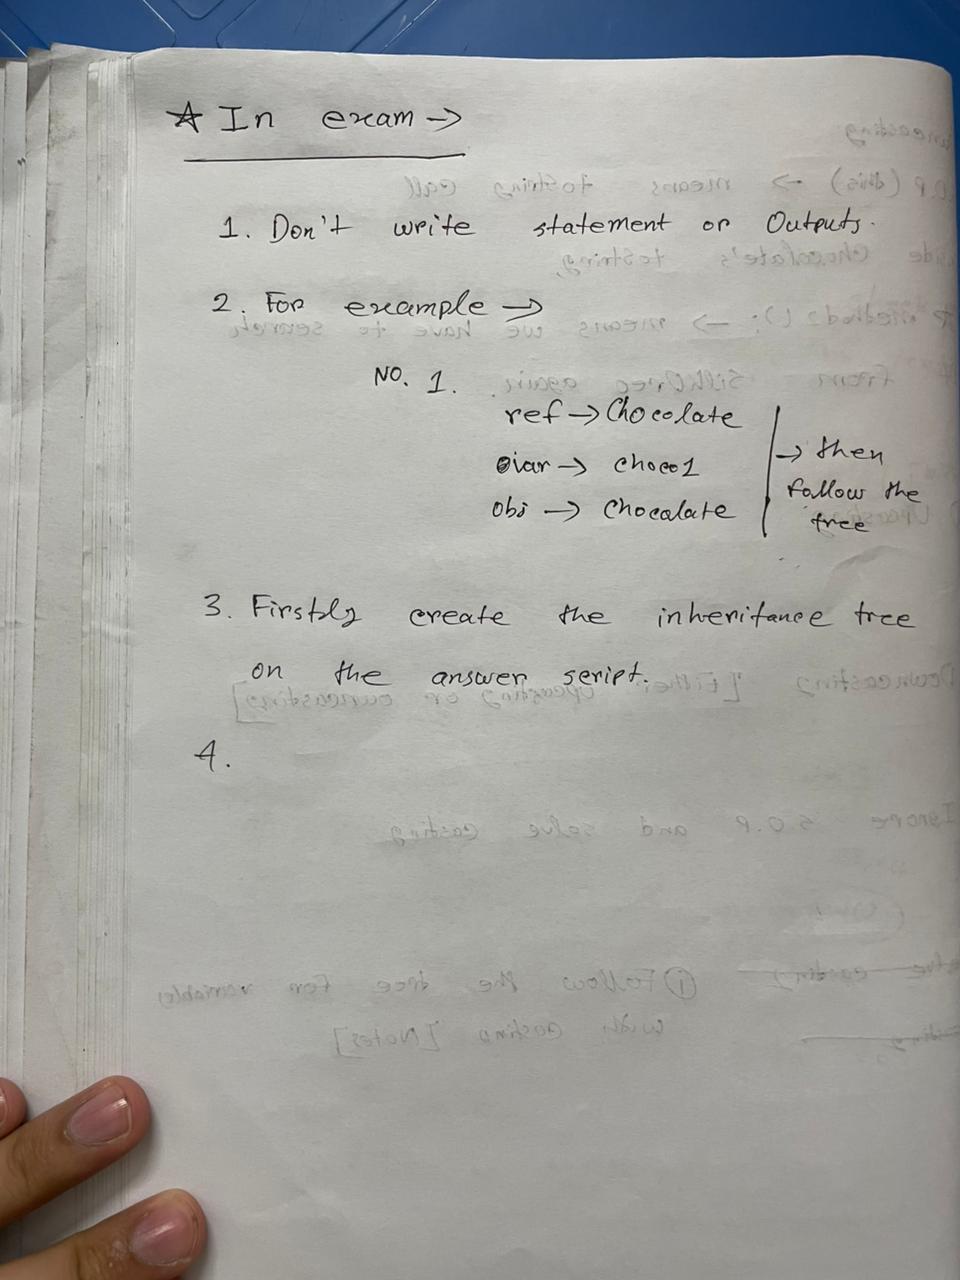 ☆ In exam →
1. Don't write statement or Outputs.
2. For example →
NO. 1.
ref → Chocolate
ivar → choco1
obj → Chocolate
→ then
follow the
tree
3. Firstly create the inheritance tree
on the answer script.
4.